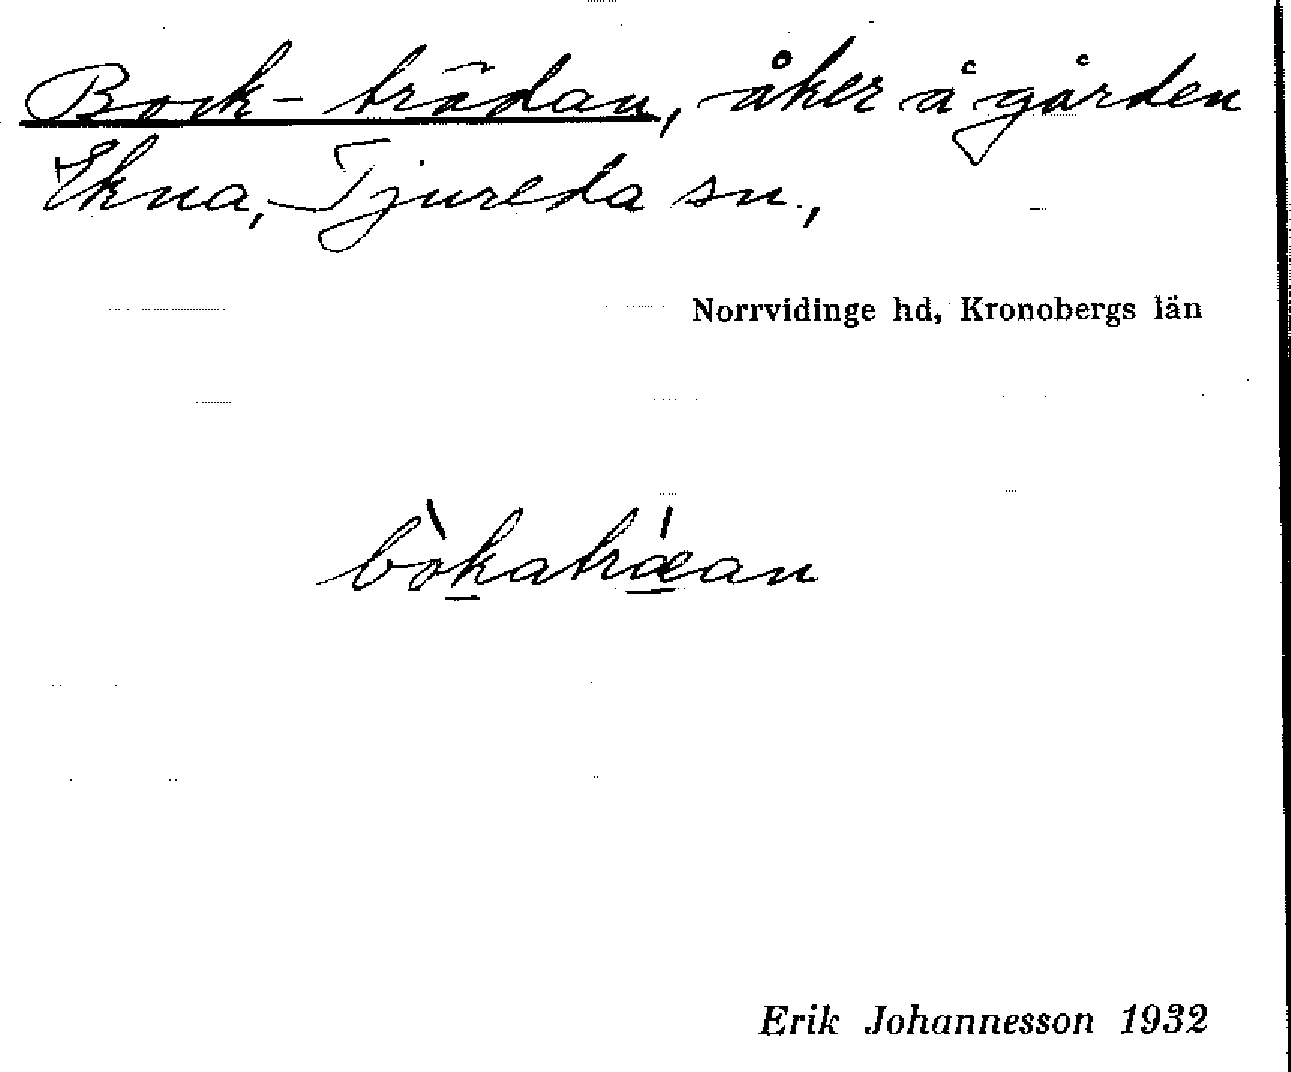 Bock-trädan, åker å gården
Ekna, Tjureda sn.,
Norrvidinge hd, Kronobergs län
bòkatrǽan
Erik Johannesson 1932